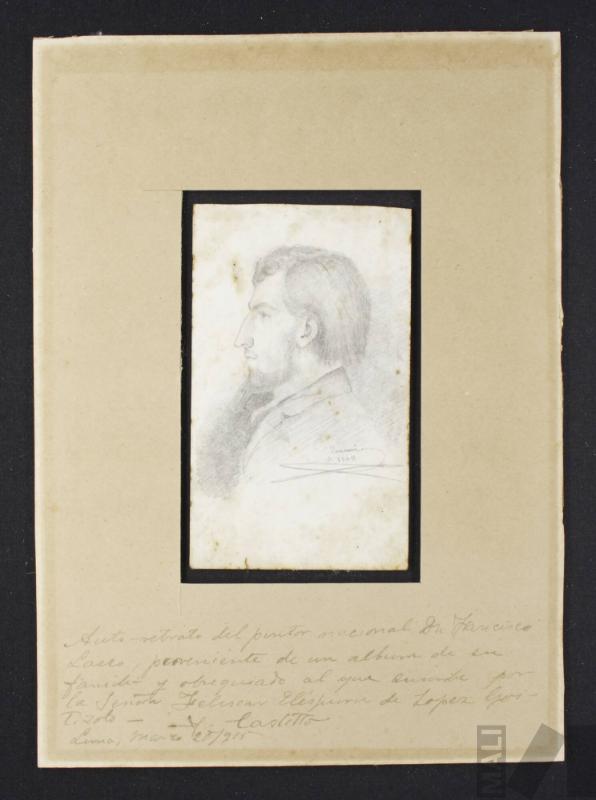 1848
Auto-retrato del pintor nacional Dn. Francisco
Laso, proveniente de un album de su
familia y obsequiado al que suscribe por
la Señora de Lopez
Lima, Marzo 28/915
MALI